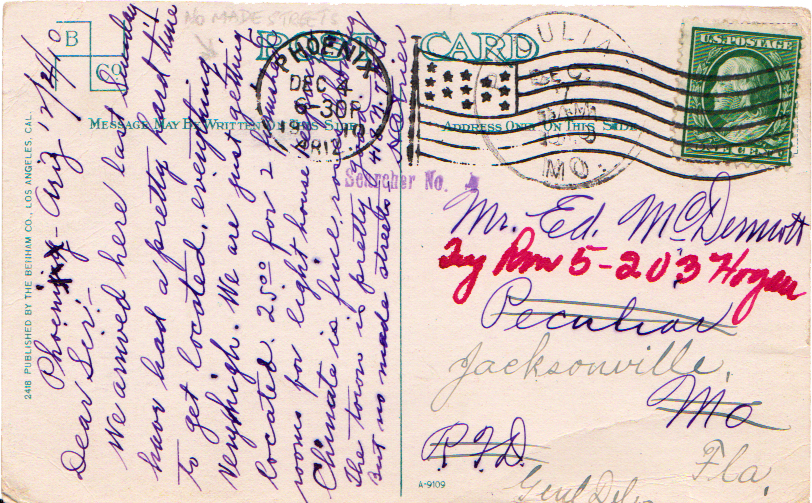 NO MADE STREETS
B
Co
POST CARD
MESSAGE MAY BE WRITTEN ON THIS SIDE
ADDRESS ONLY ON THIS SIDE
2418 PUBLISHED BY THE BENHAM CO., LOS ANGELES, CAL.
Phoenix Ariz 12/4/10
Dear Sir:-
We arrived here last Sunday
have had a pretty hard time
to get located. everything
very high. We are just getting
located. 25.00 for 2
rooms for light house
Climate is fine
The town is pretty
But no made streets
PHOENIX
DEC 4
6-30P
1910
ARIZ
JULIA
DEC
MO.
U.S. POSTAGE
ONE CENT
Searcher No. 4
Mr. Ed. McDermott
Try Rm 5-203 Hogan
Peculiar
Jacksonville,
Mo
R.F.D.
Fla.
Genl Del.
A-9109